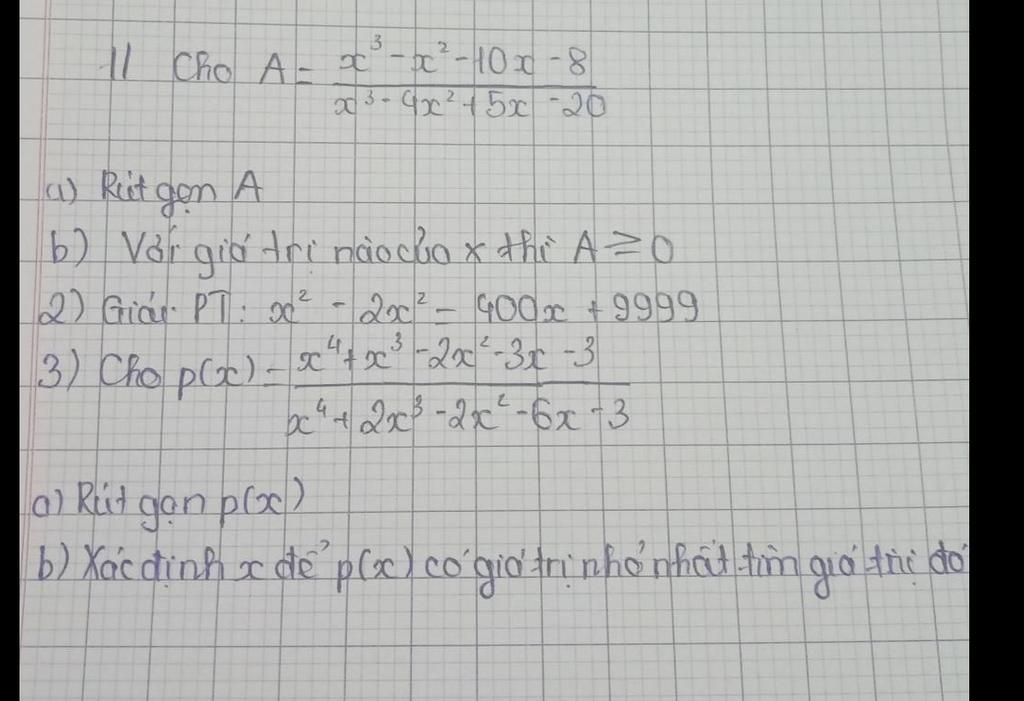 1) Cho A = \frac{x^3 - x^2 - 10x - 8}{x^3 - 4x^2 + 5x - 20}
a) Rút gọn A
b) Với giá trị nào của x thì A ≥ 0
2) Giải PT: x^2 - 2x^2 - 400x + 9999
3) Cho p(x) = \frac{x^4 + x^3 - 2x^2 - 3x - 3}{x^4 + 2x^3 - 2x^2 - 6x - 3}
a) Rút gọn p(x)
b) Xác định x để p(x) có giá trị nhỏ nhất tìm giá trị đó